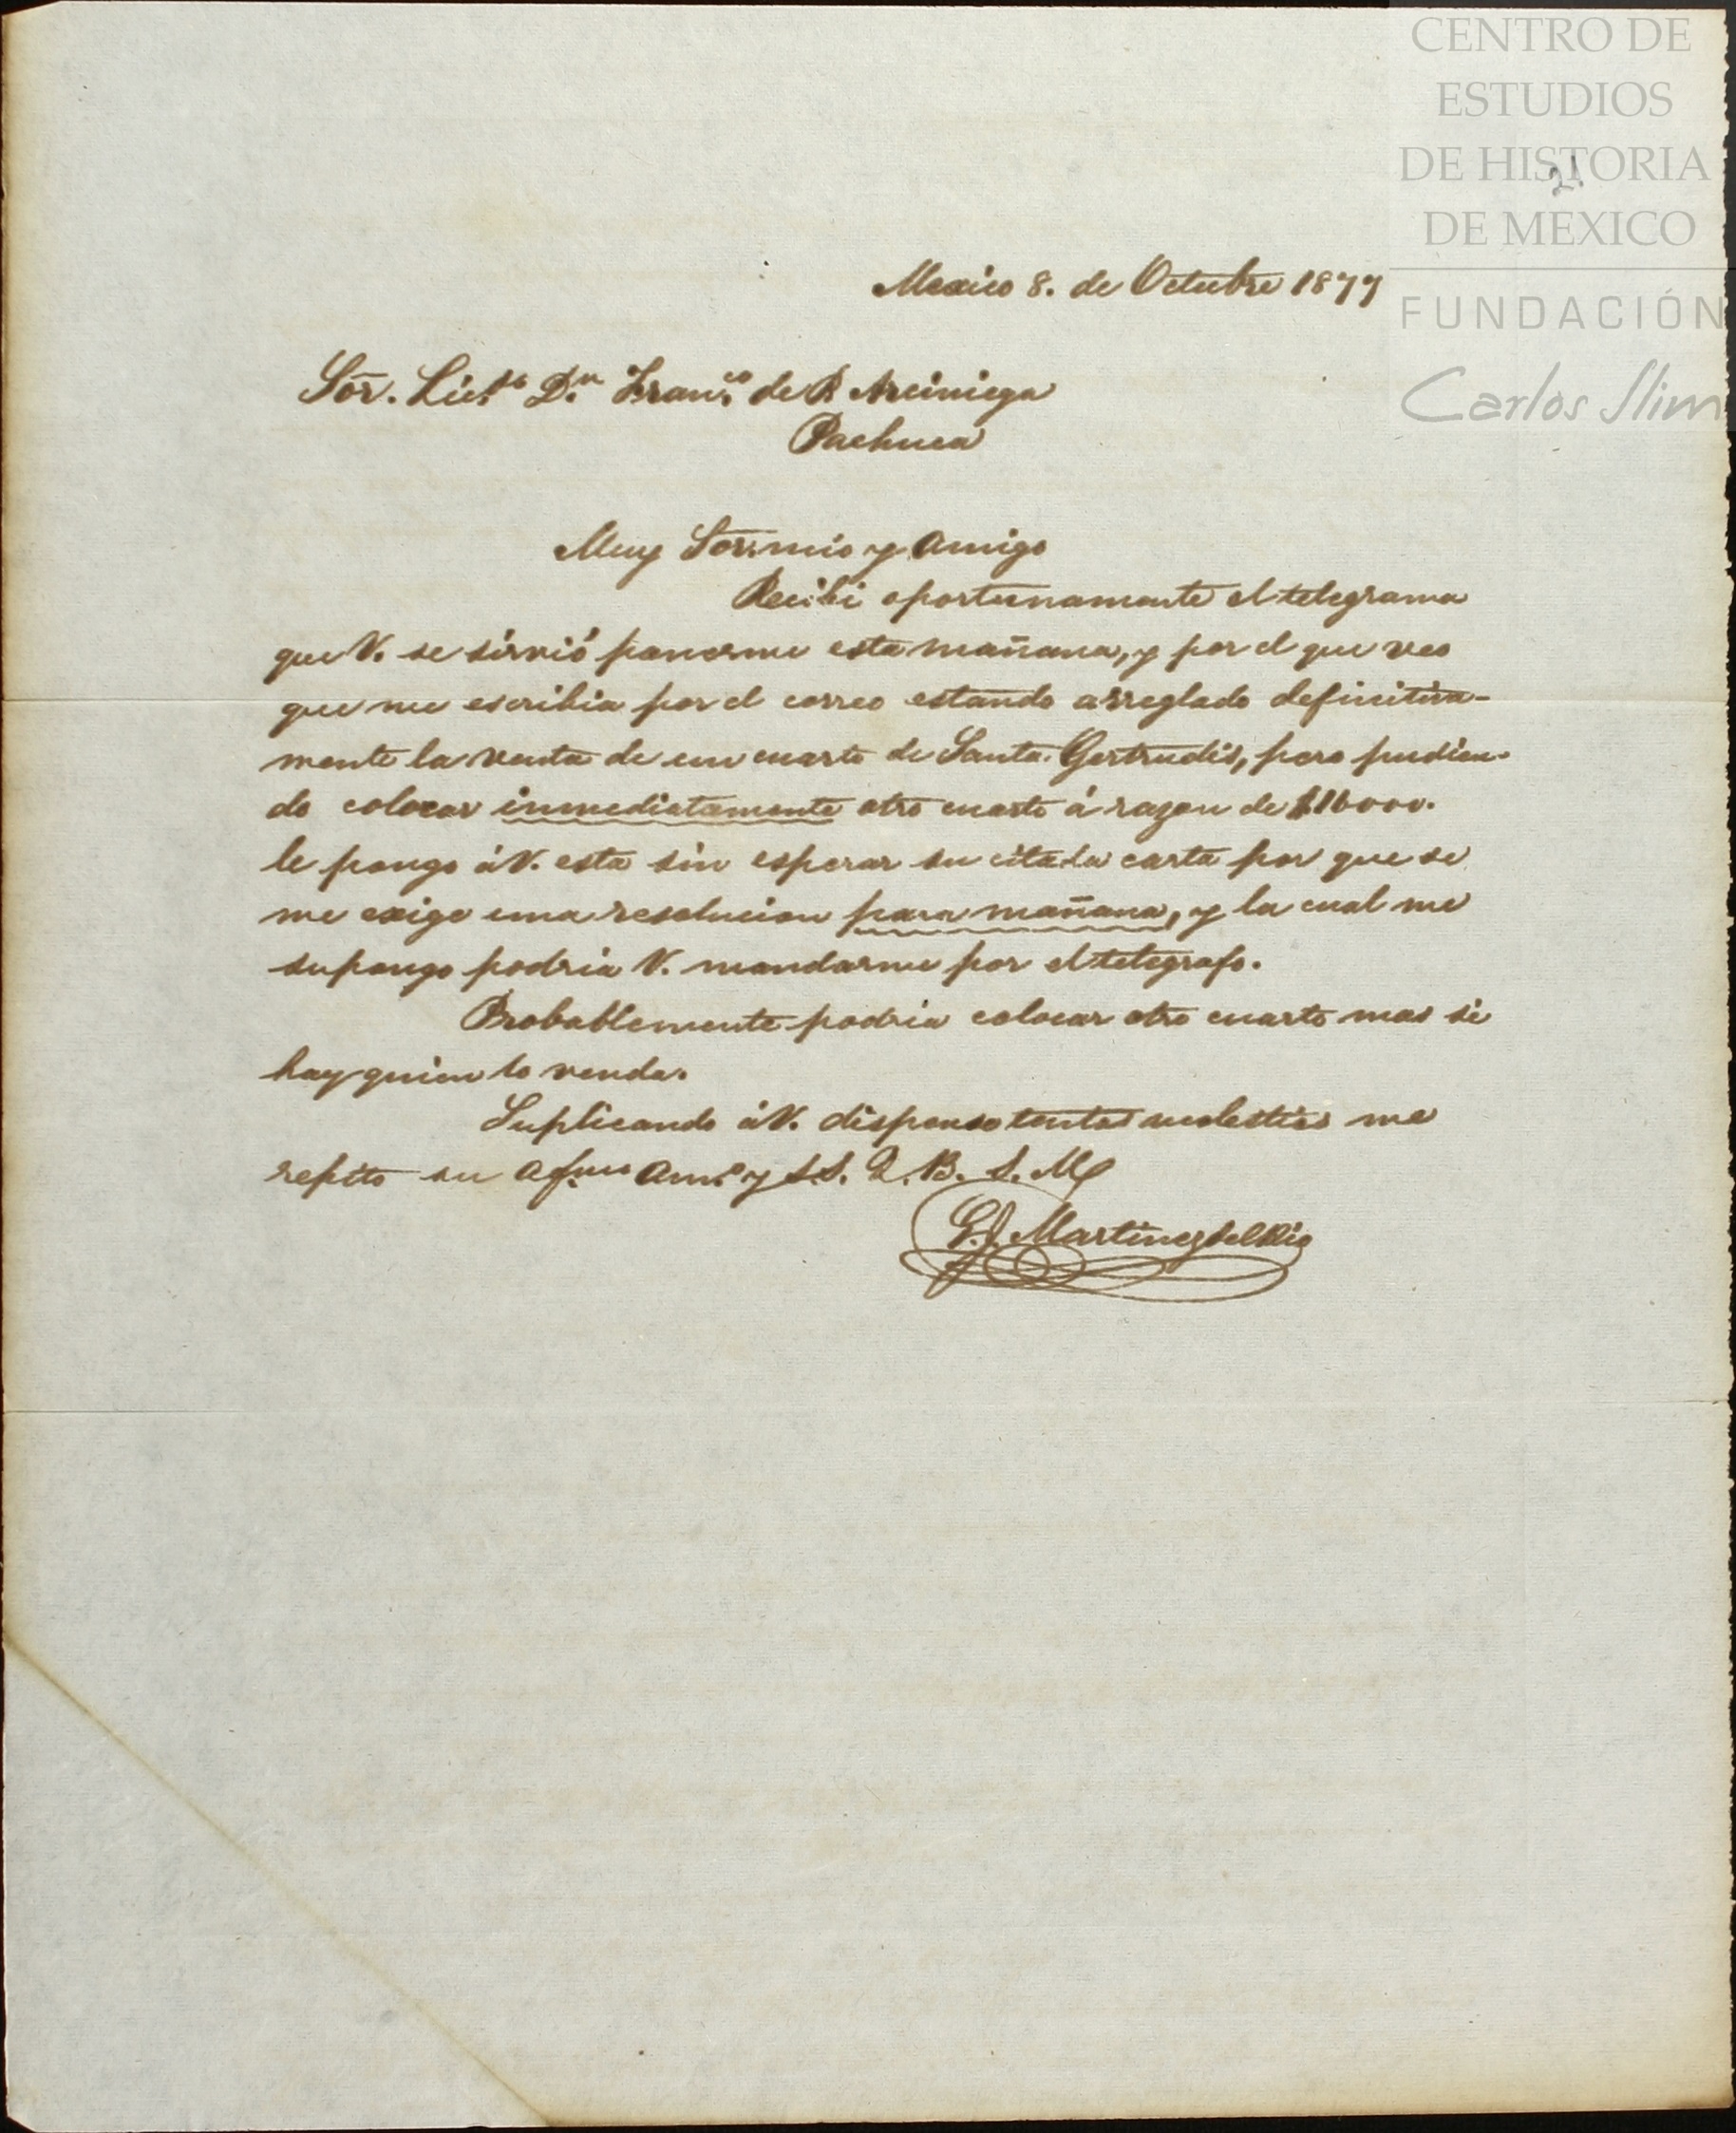 CENTRO DE
ESTUDIOS
DE HISTORIA
DE MEXICO
FUNDACIÓN
Carlos Slim
21
Mexico 8. de Octubre 1877
Sōr. Lic.do D.n Fran.co de P. Arciniega
Pachuca
Muy Sōr. mio y amigo
Recibi oportunamente el telegrama
que V. se sirvió ponerme esta mañana, y por el que veo
que me escribia por el correo estando arreglado definitiva-
mente la venta de un cuarto de Santa Gertrudis, pero pudien-
do colocar inmediatamente otro cuarto á razon de $16000.
le pongo á V. esta sin esperar su citada carta por que se
me exige una resolucion para mañana, y la cual me
supongo podria V. mandarme por el telegrafo.
Probablemente podria colocar otro cuarto mas si
hay quien lo venda.
Suplicando á V. dispense tantas molestias me
repito su af.mo am.o y S.S. Q. B. S. M
G. J. Martinez del Rio